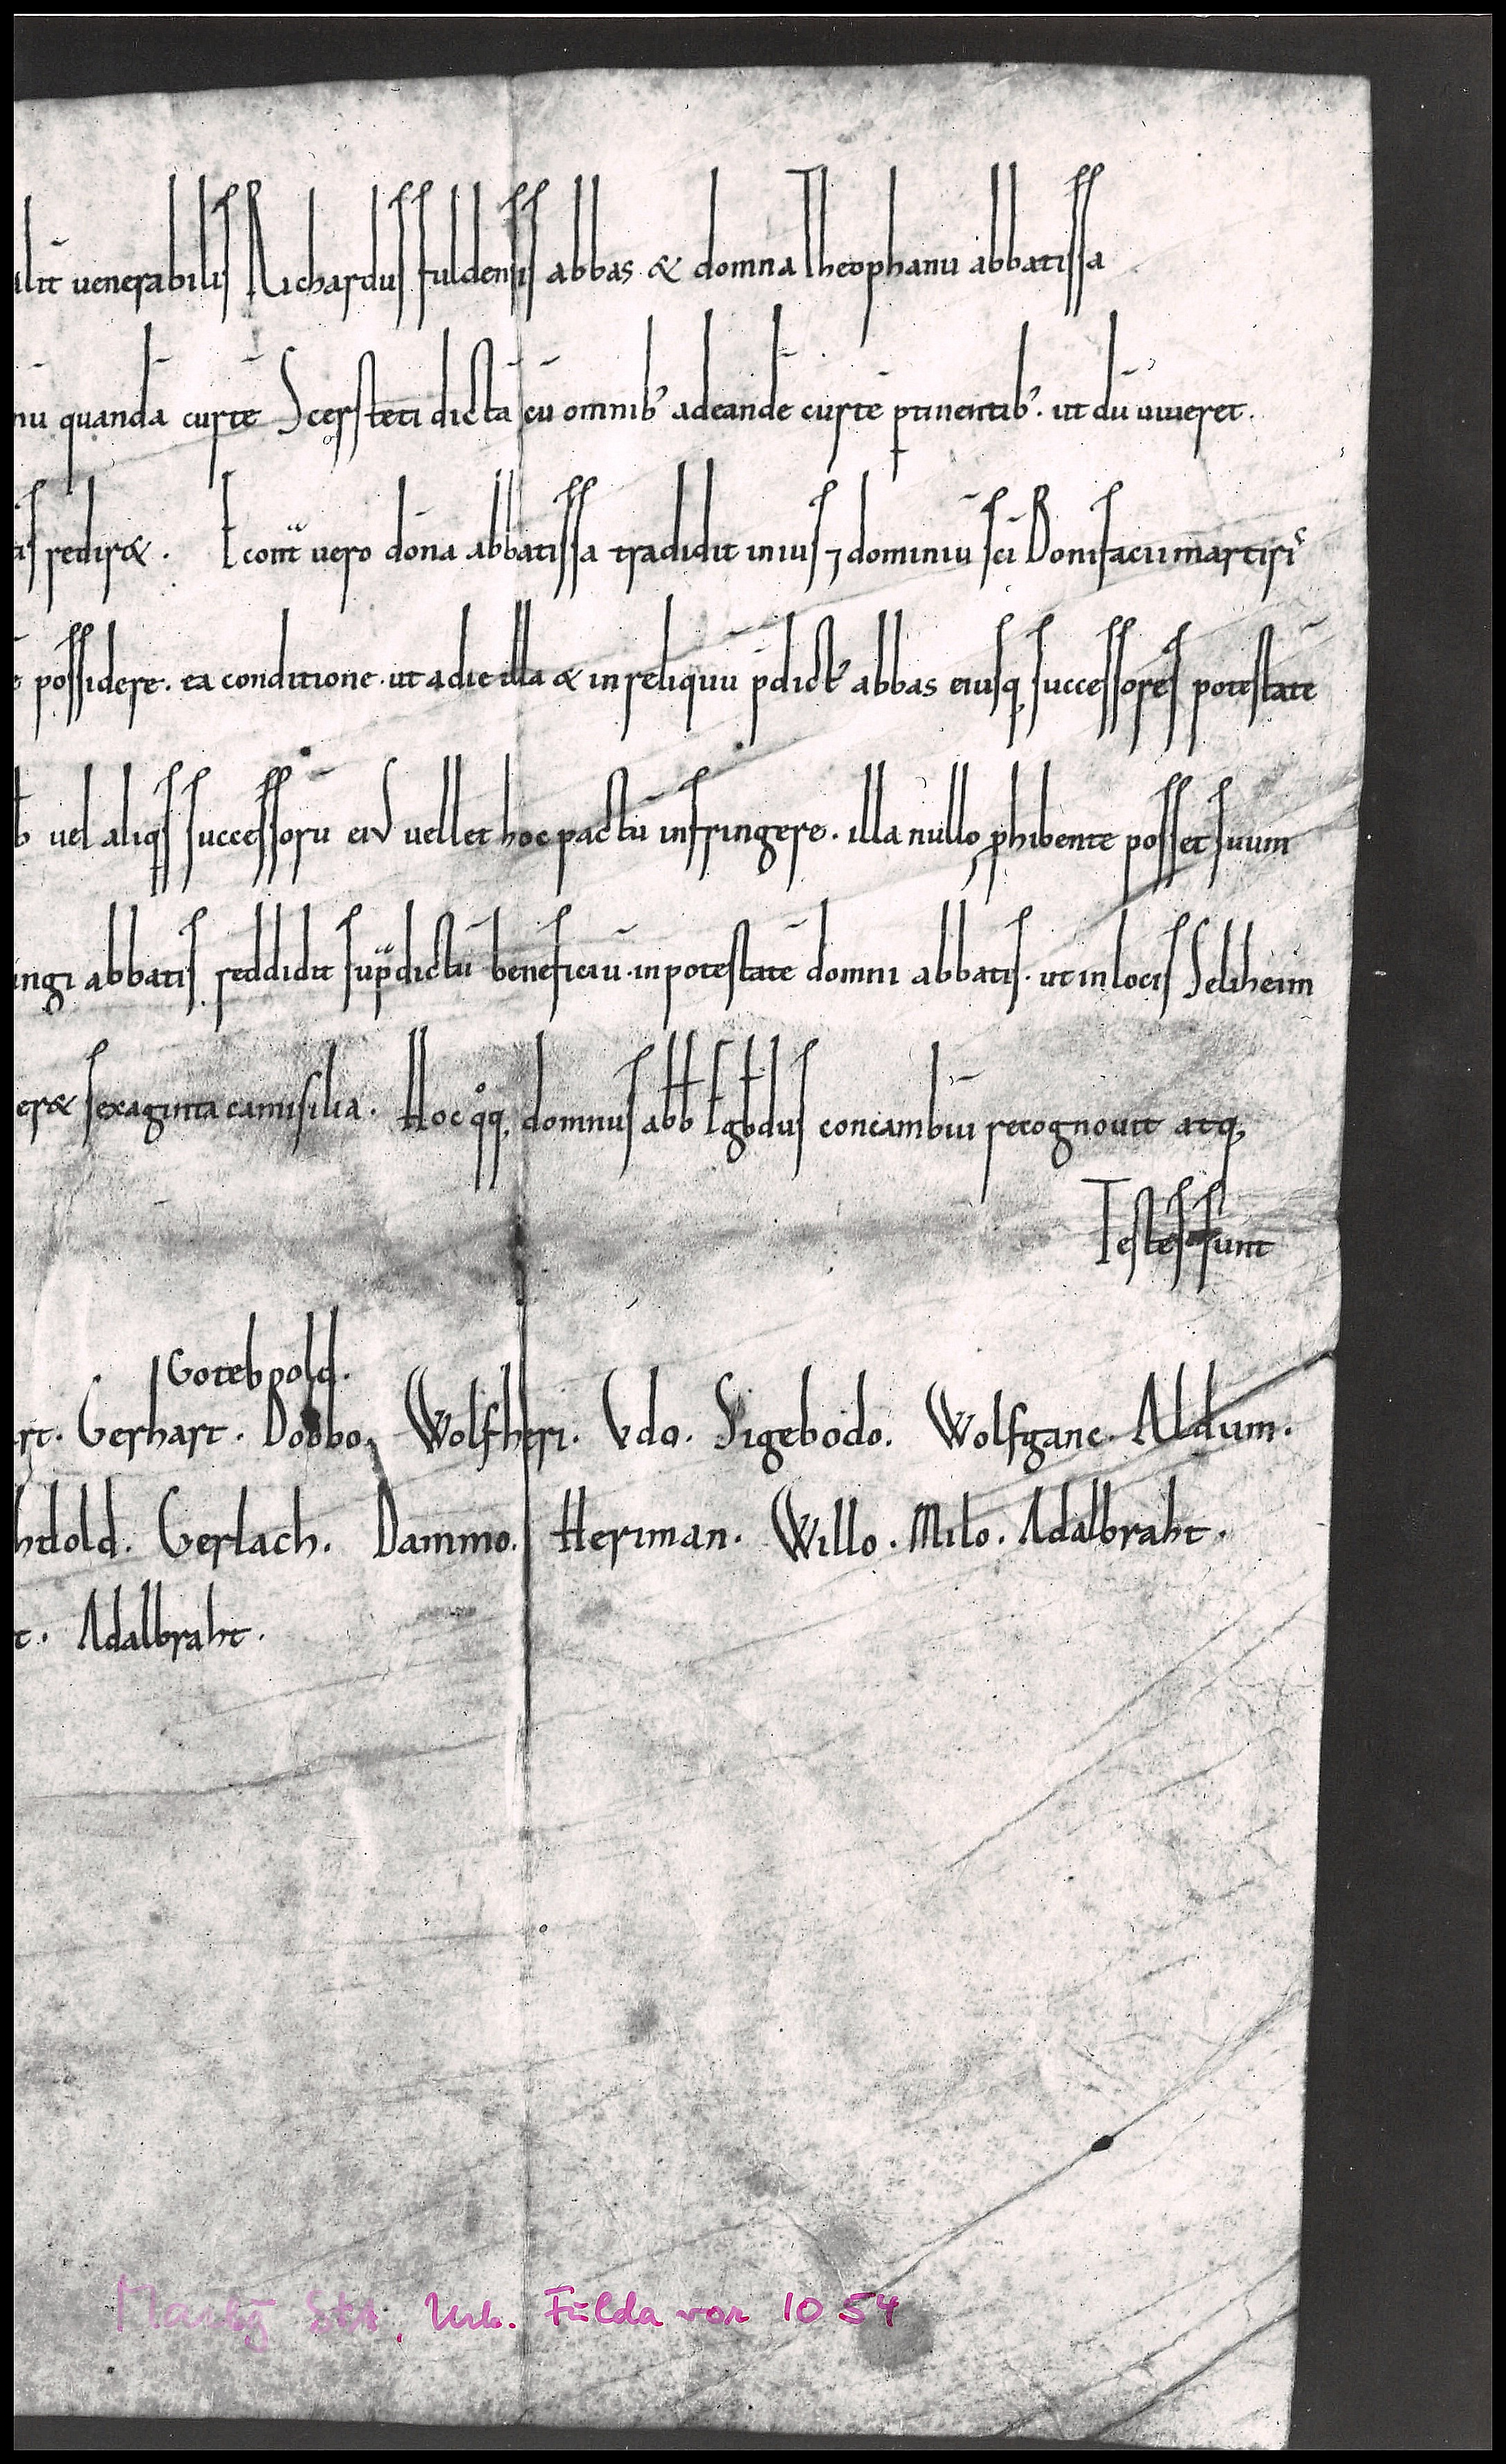 lit uenerabilis Richardus fuldensis abbas & domna Theophanu abbatissa
nu quandā curtē Scersteti dictā cū omnib' adeandē curtē ptinentib'. ut dū uiueret.
is redir&. E cont̄ uero dōna abbatissa tradidit inius ⁊ dominiū sc̄i Bonifacii martiris
possidere. ea conditione. ut adie illa & inreliquū p̄dict' abbas eiusq; successores potestatē
uel aliqs successorū ei' uellet hoc pactū infringere. illa nullo phibente posset suum
ingi abbatis reddidit sup̄dictū beneficiū. inpotestatē domni abbatis. ut inlocis Seliheim
er& sexaginta camisilia. Hoc qoq; domnus abb Egbdus concambiū recognouit atq;
Testes sunt
Gotebpold.
rt. Gerhart. Dobbo. Wolfheri. Vdo. Sigebodo. Wolfganc. Aldum.
htold. Gerlach. Dammo. Heriman. Willo. Milo. Adalbraht.
t. Adalbraht.
Marbg StA, Urk. Fulda vor 1054